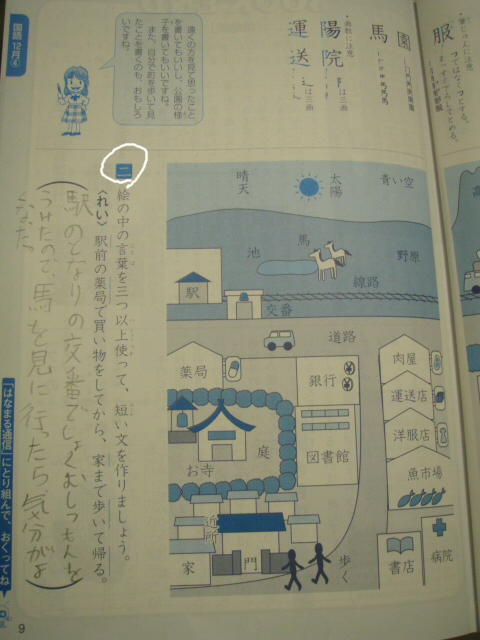 服
筆じゅんに注意
園
馬
画数に注意
陽院
阝は三画
運送
辶は三画
国語 12月④
遠くの方を見て思ったこと
を書いてもいいし、公園の様
子を書いてもいいですね。
また、自分で町を歩いて見
たことを書くのも、おもしろ
いですね。
青い空
太陽
晴天
野原
馬
池
線路
駅
交番
道路
肉屋
運送店
洋服店
魚市場
病院
書店
銀行
図書館
薬局
庭
お寺
近所
門
家
歩く
二
絵の中の言葉を三つ以上使って、短い文を作りましょう。
〈れい〉駅前の薬局で買い物をしてから、家まで歩いて帰る。
駅のとなりの交番でしょくむしつもんを
うけたので、馬を見に行ったら気分がよ
くなった
「はなまる通信」にとり組んで、おくってね
9